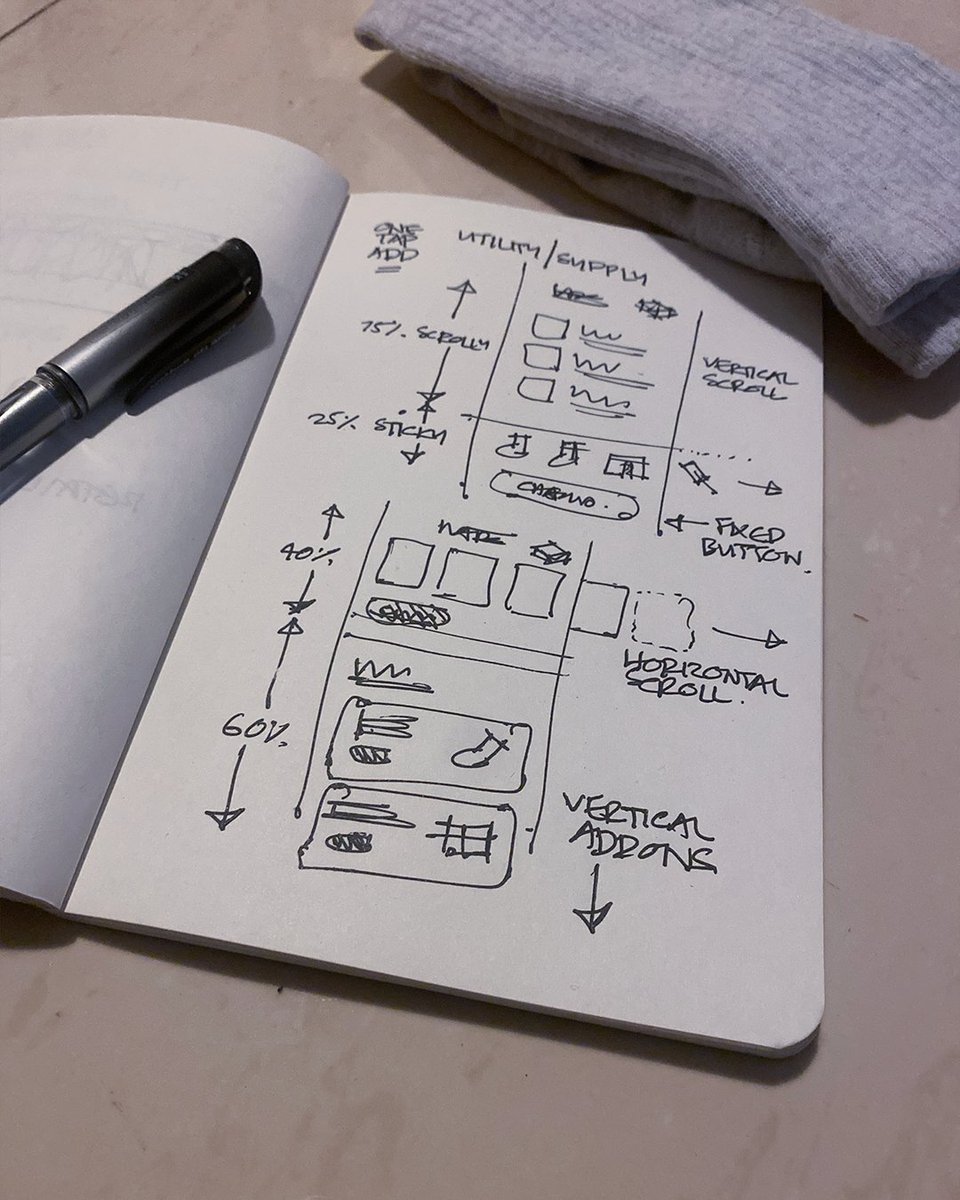 ONE
TAP
ADD
UTILITY/SUPPLY
75% SCROLLY
VERTICAL
SCROLL
25% STICKY
FIXED
BUTTON.
40%
HORIZONTAL
SCROLL.
60%
VERTICAL
ADDONS